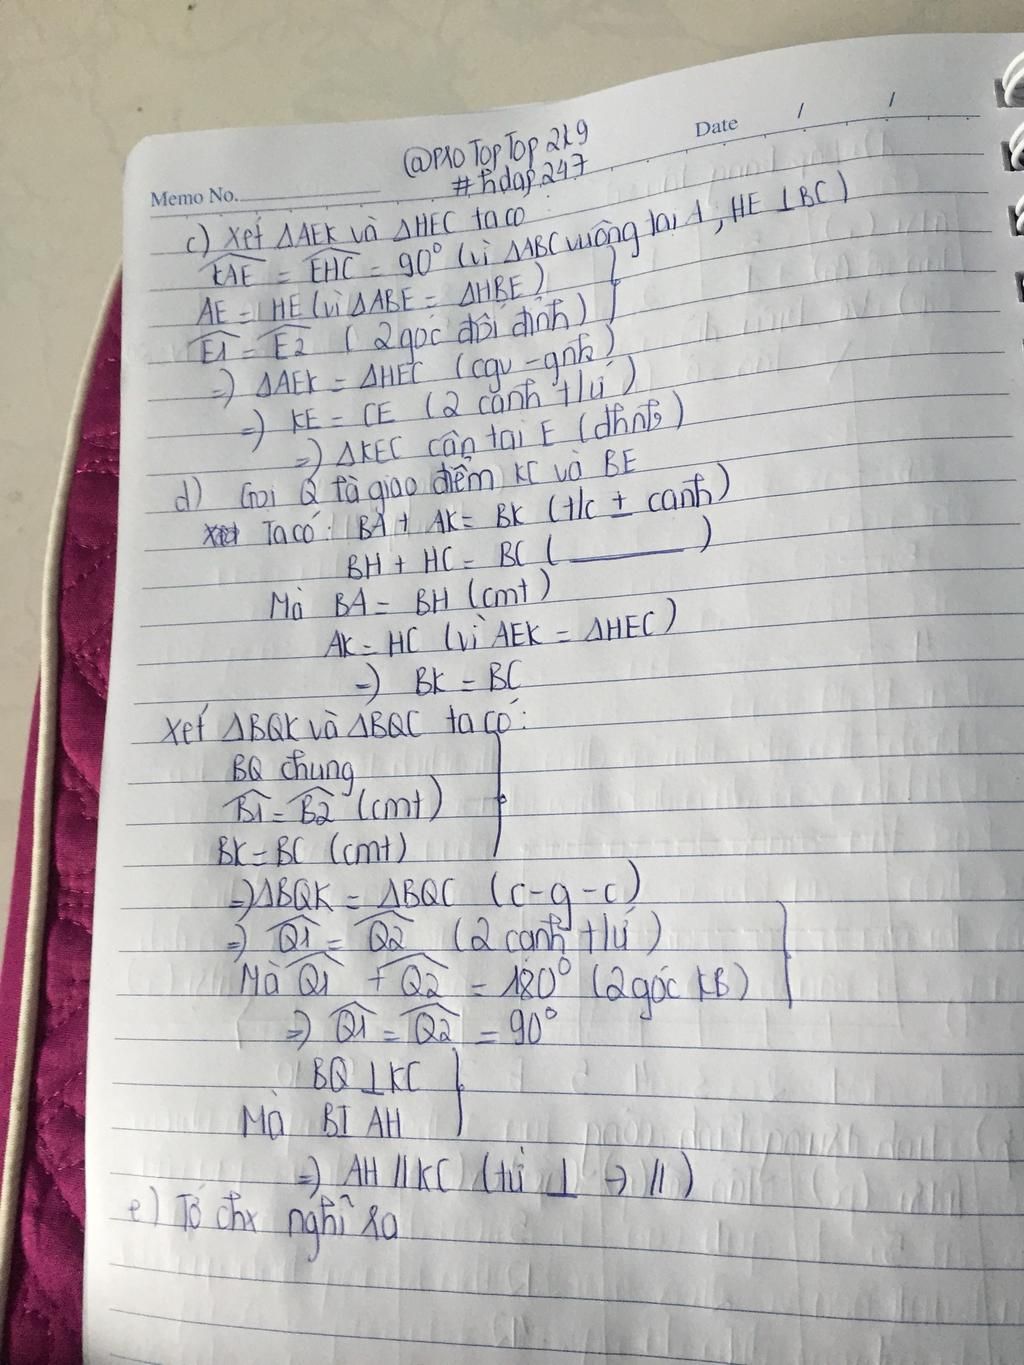 Date / /
@PRO TopTop 2k9
Memo No.
#hdap.247
c) Xét ΔAEK và ΔHEC ta có
KAE = EHC = 90° (vì ΔABC vuông tại A, HE ⊥ BC)
AE = HE (vì ΔABE = ΔHBE)
E1 = E2 (2 góc đối đỉnh)
=) ΔAEK = ΔHEC (cgv - gnk)
=) KE = CE (2 cạnh t/ứ)
=) ΔKEC cân tại E (dhnb)
d) Gọi Q là giao điểm KC và BE
Ta có: BA + AK = BK (t/c ± cạnh)
BH + HC = BC ( ______ )
Mà BA = BH (cmt)
AK = HC (vì AEK = ΔHEC)
=) BK = BC
Xét ΔBQK và ΔBQC ta có:
BQ chung
B1 = B2 (cmt)
BK = BC (cmt)
=) ΔBQK = ΔBQC (c-g-c)
=) Q1 = Q2 (2 cạnh t/ứ)
Mà Q1 + Q2 = 180° (2 góc KB)
=) Q1 = Q2 = 90°
BQ ⊥ KC
Mà BI AH
=) AH // KC (từ ⊥ → //)
e) Tớ chx nghĩ ra